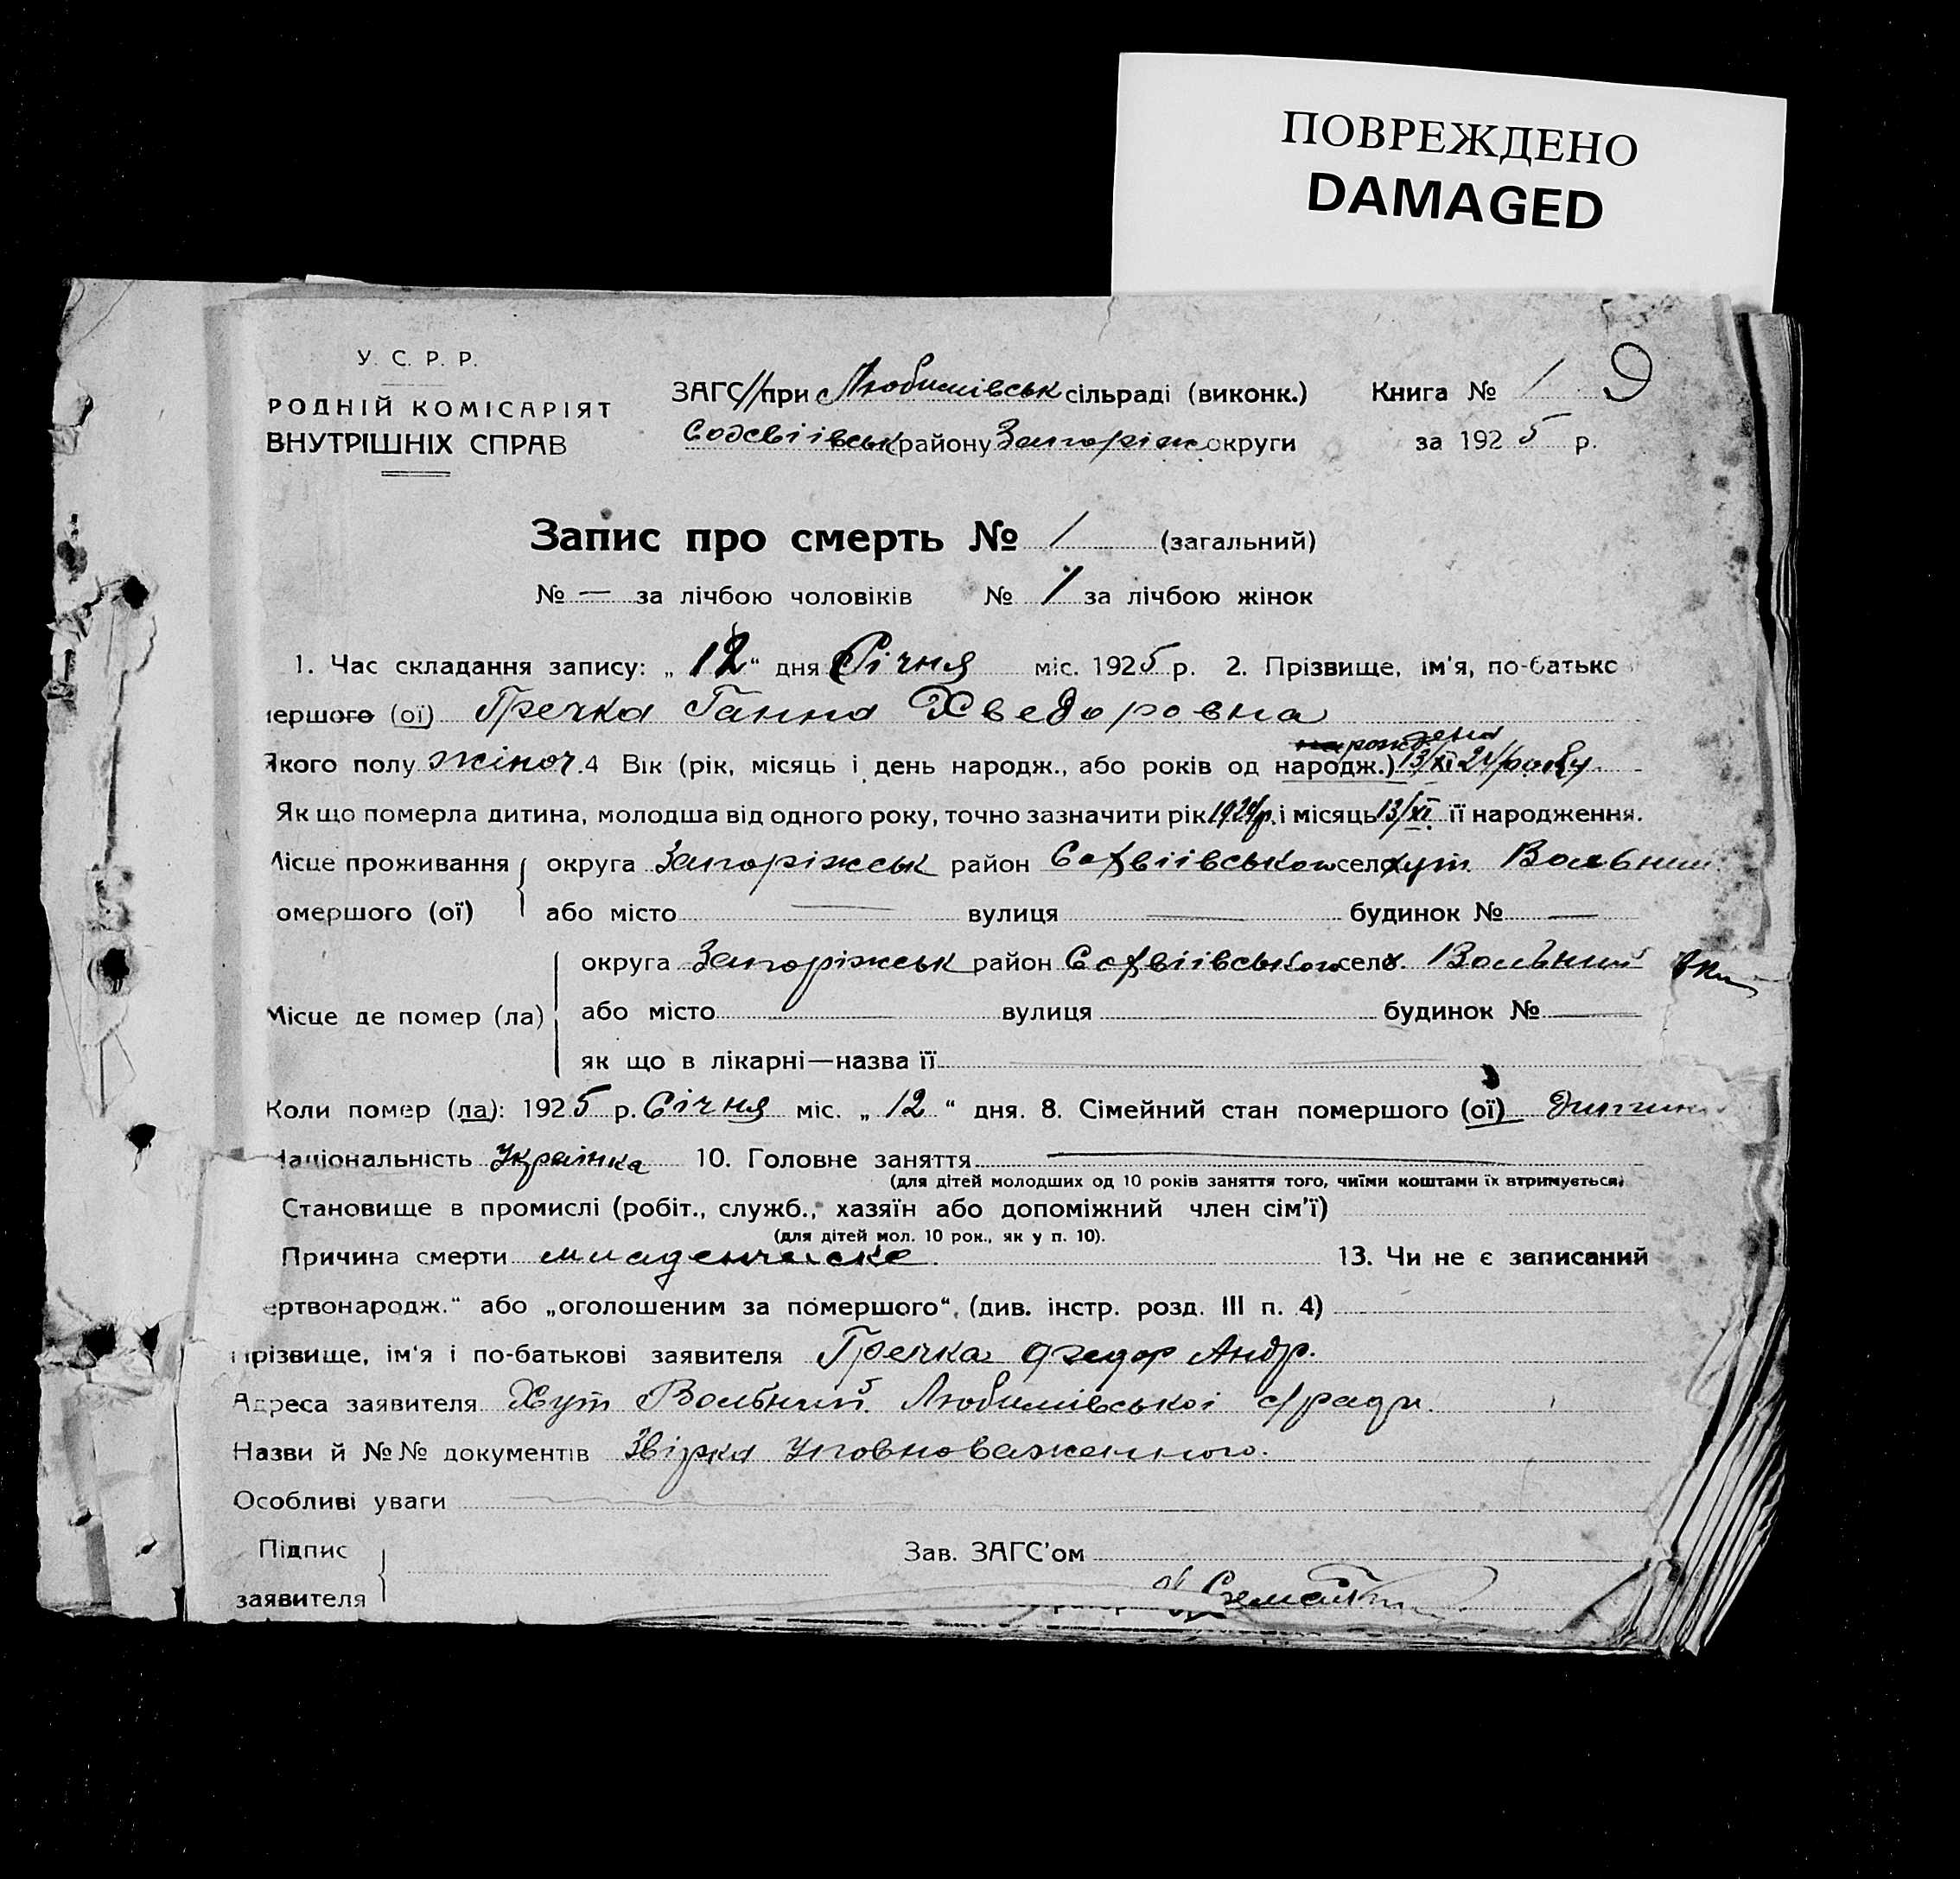 ПОВРЕЖДЕНО
DAMAGED
У. С. Р. Р.
РОДНІЙ КОМІСАРІЯТ
ВНУТРІШНІХ СПРАВ
ЗАГС // при Любимівськ сільраді (виконк.) Книга № 1 9
району Запоріж округи за 1925 р.
Запис про смерть № 1 (загальний)
№ — за лічбою чоловіків № 1 за лічбою жінок
1. Час складання запису: „ 12 “ дня Січня міс. 1925 р. 2. Прізвище, ім'я, по-батько
мершого (ої) Гречка Ганна Хведоровна
Якого полу жіноч. 4 Вік (рік, місяць і день народж., або років од народж.) 13/XI 24 року
Як що померла дитина, молодша від одного року, точно зазначити рік 1924 р. і місяць 13/XI її народження.
Місце проживання округа Запоріжськ район Софвіівського село хут. Вольний
омершого (ої) або місто — вулиця — будинок № —
округа Запоріжськ район Софвіівського село х. Вольний
Місце де помер (ла) або місто — вулиця — будинок № —
як що в лікарні—назва її —
Коли помер (ла): 1925 р. Січня міс. „ 12 “ дня. 8. Сімейний стан помершого (ої) дитина
Національність Українка 10. Головне заняття —
(для дітей молодших од 10 років заняття того, чиїми коштами їх втримується)
Становище в промислі (робіт., служб., хазяїн або допоміжний член сім'ї)
(для дітей мол. 10 рок., як у п. 10).
Причина смерти младенческе. 13. Чи не є записаний
ертвонародж.“ або „оголошеним за помершого“. (див. інстр. розд. III п. 4)
Прізвище, ім'я і по-батькові заявителя Гречка Федор Андр.
Адреса заявителя Хут Вольний Любимівськоі с/ради.
Назви й №№ документів Звірка Уповноваженного.
Особливі уваги
Підпис
заявителя
Зав. ЗАГС'ом